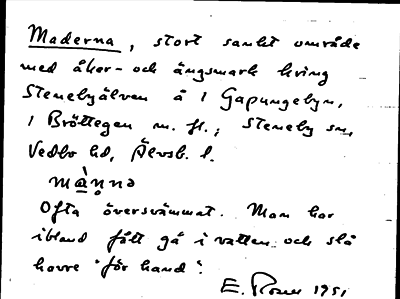 Maderna, stort sankt område
med åker- och ängsmark kring
Stenebyälven å 1 Gapungebyn,
1 Bröttegen m. fl., Steneby sn,
Vedbo hd, Älvsb. l.
mànnə
Ofta översvämmat. Man har
ibland fått gå i vatten och slå
havre "för hand".
E. Rosen 1951